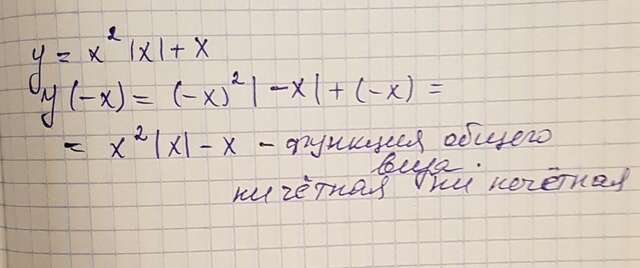 y = x² |x| + x
y(-x) = (-x)² |-x| + (-x) =
= x² |x| - x - функция общего
вида.
ни чётная ни нечётная